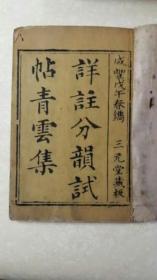 咸豐戊午春鐫
三元堂藏板
詳註分韻試
帖青雲集